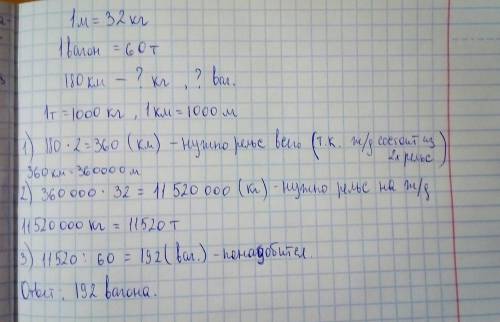 1м = 32 кг
1вагон = 60 т
180 км - ? кг , ? ваг.
1т = 1000 кг , 1 км = 1000 м
1) 180 · 2 = 360 (км) - нужно рельс всего (т.к. ж/д состоит из 2х рельс)
360 км = 360000 м
2) 360000 · 32 = 11 520 000 (кг) - нужно рельс на ж/д
11520000 кг = 11520 т
3) 11520 : 60 = 192 (ваг.) - понадобится.
Ответ: 192 вагона.